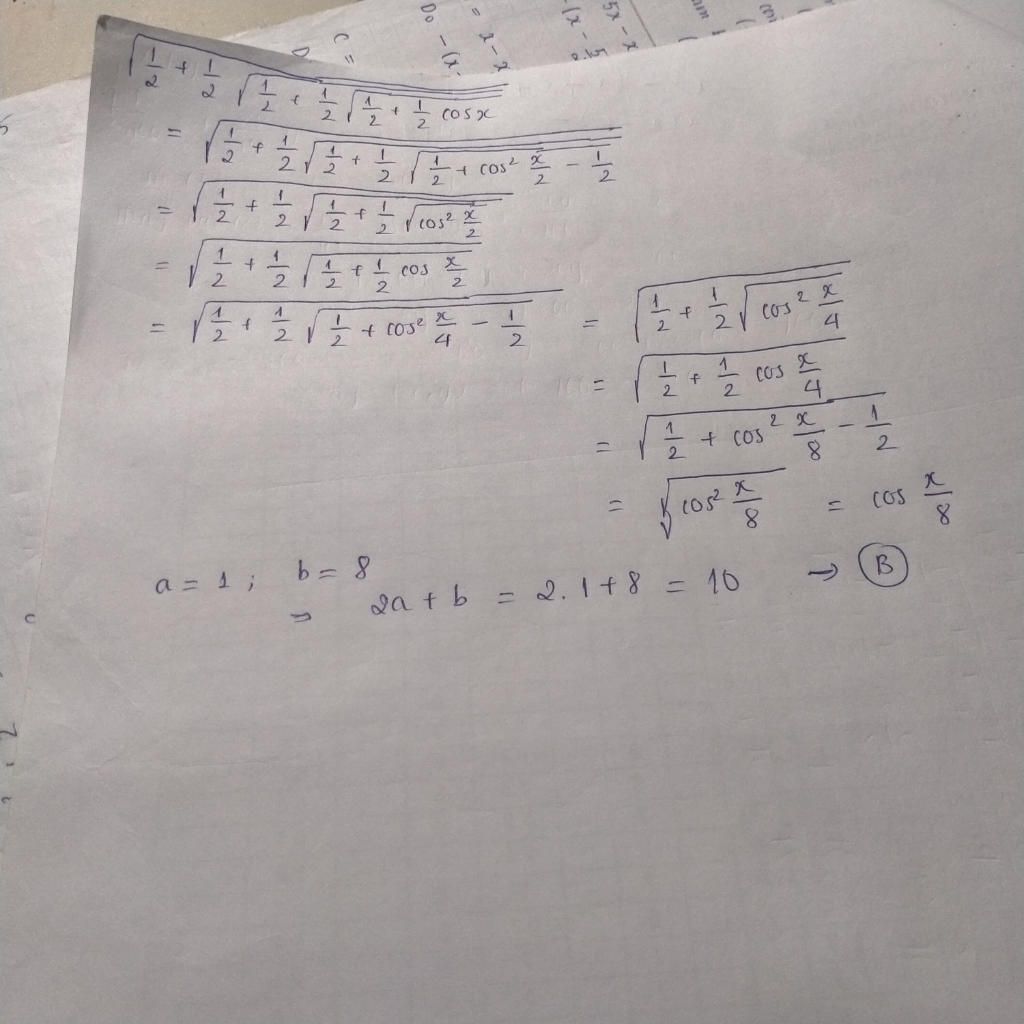 √(1/2 + 1/2 √(1/2 + 1/2 √(1/2 + 1/2 cos x)))
= √(1/2 + 1/2 √(1/2 + 1/2 √(1/2 + cos² x/2 - 1/2)))
= √(1/2 + 1/2 √(1/2 + 1/2 √(cos² x/2)))
= √(1/2 + 1/2 √(1/2 + 1/2 cos x/2))
= √(1/2 + 1/2 √(1/2 + cos² x/4 - 1/2)) = √(1/2 + 1/2 √(cos² x/4))
= √(1/2 + 1/2 cos x/4)
= √(1/2 + cos² x/8 - 1/2)
= √(cos² x/8) = cos x/8
a = 1 ; b = 8
⇒ 2a + b = 2.1 + 8 = 10 → B